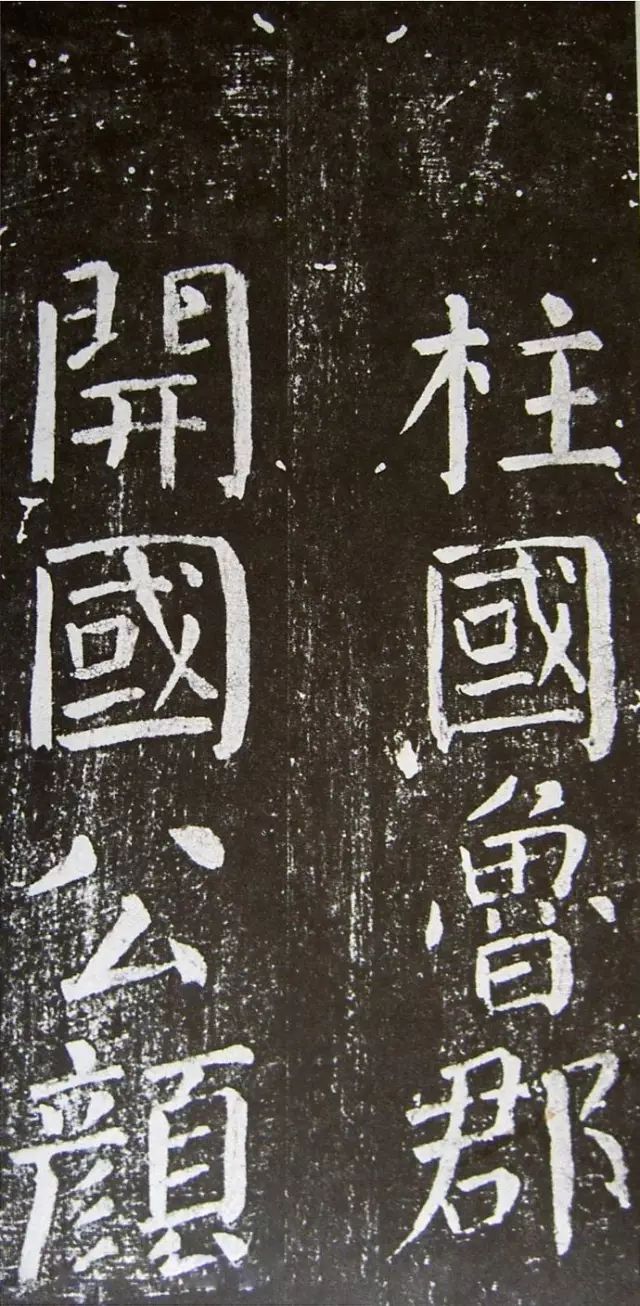 柱國魯郡
開國公顏